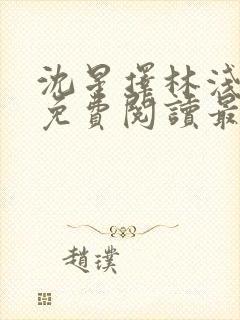 沈星擇林淺
免費閱讀最
趙璞